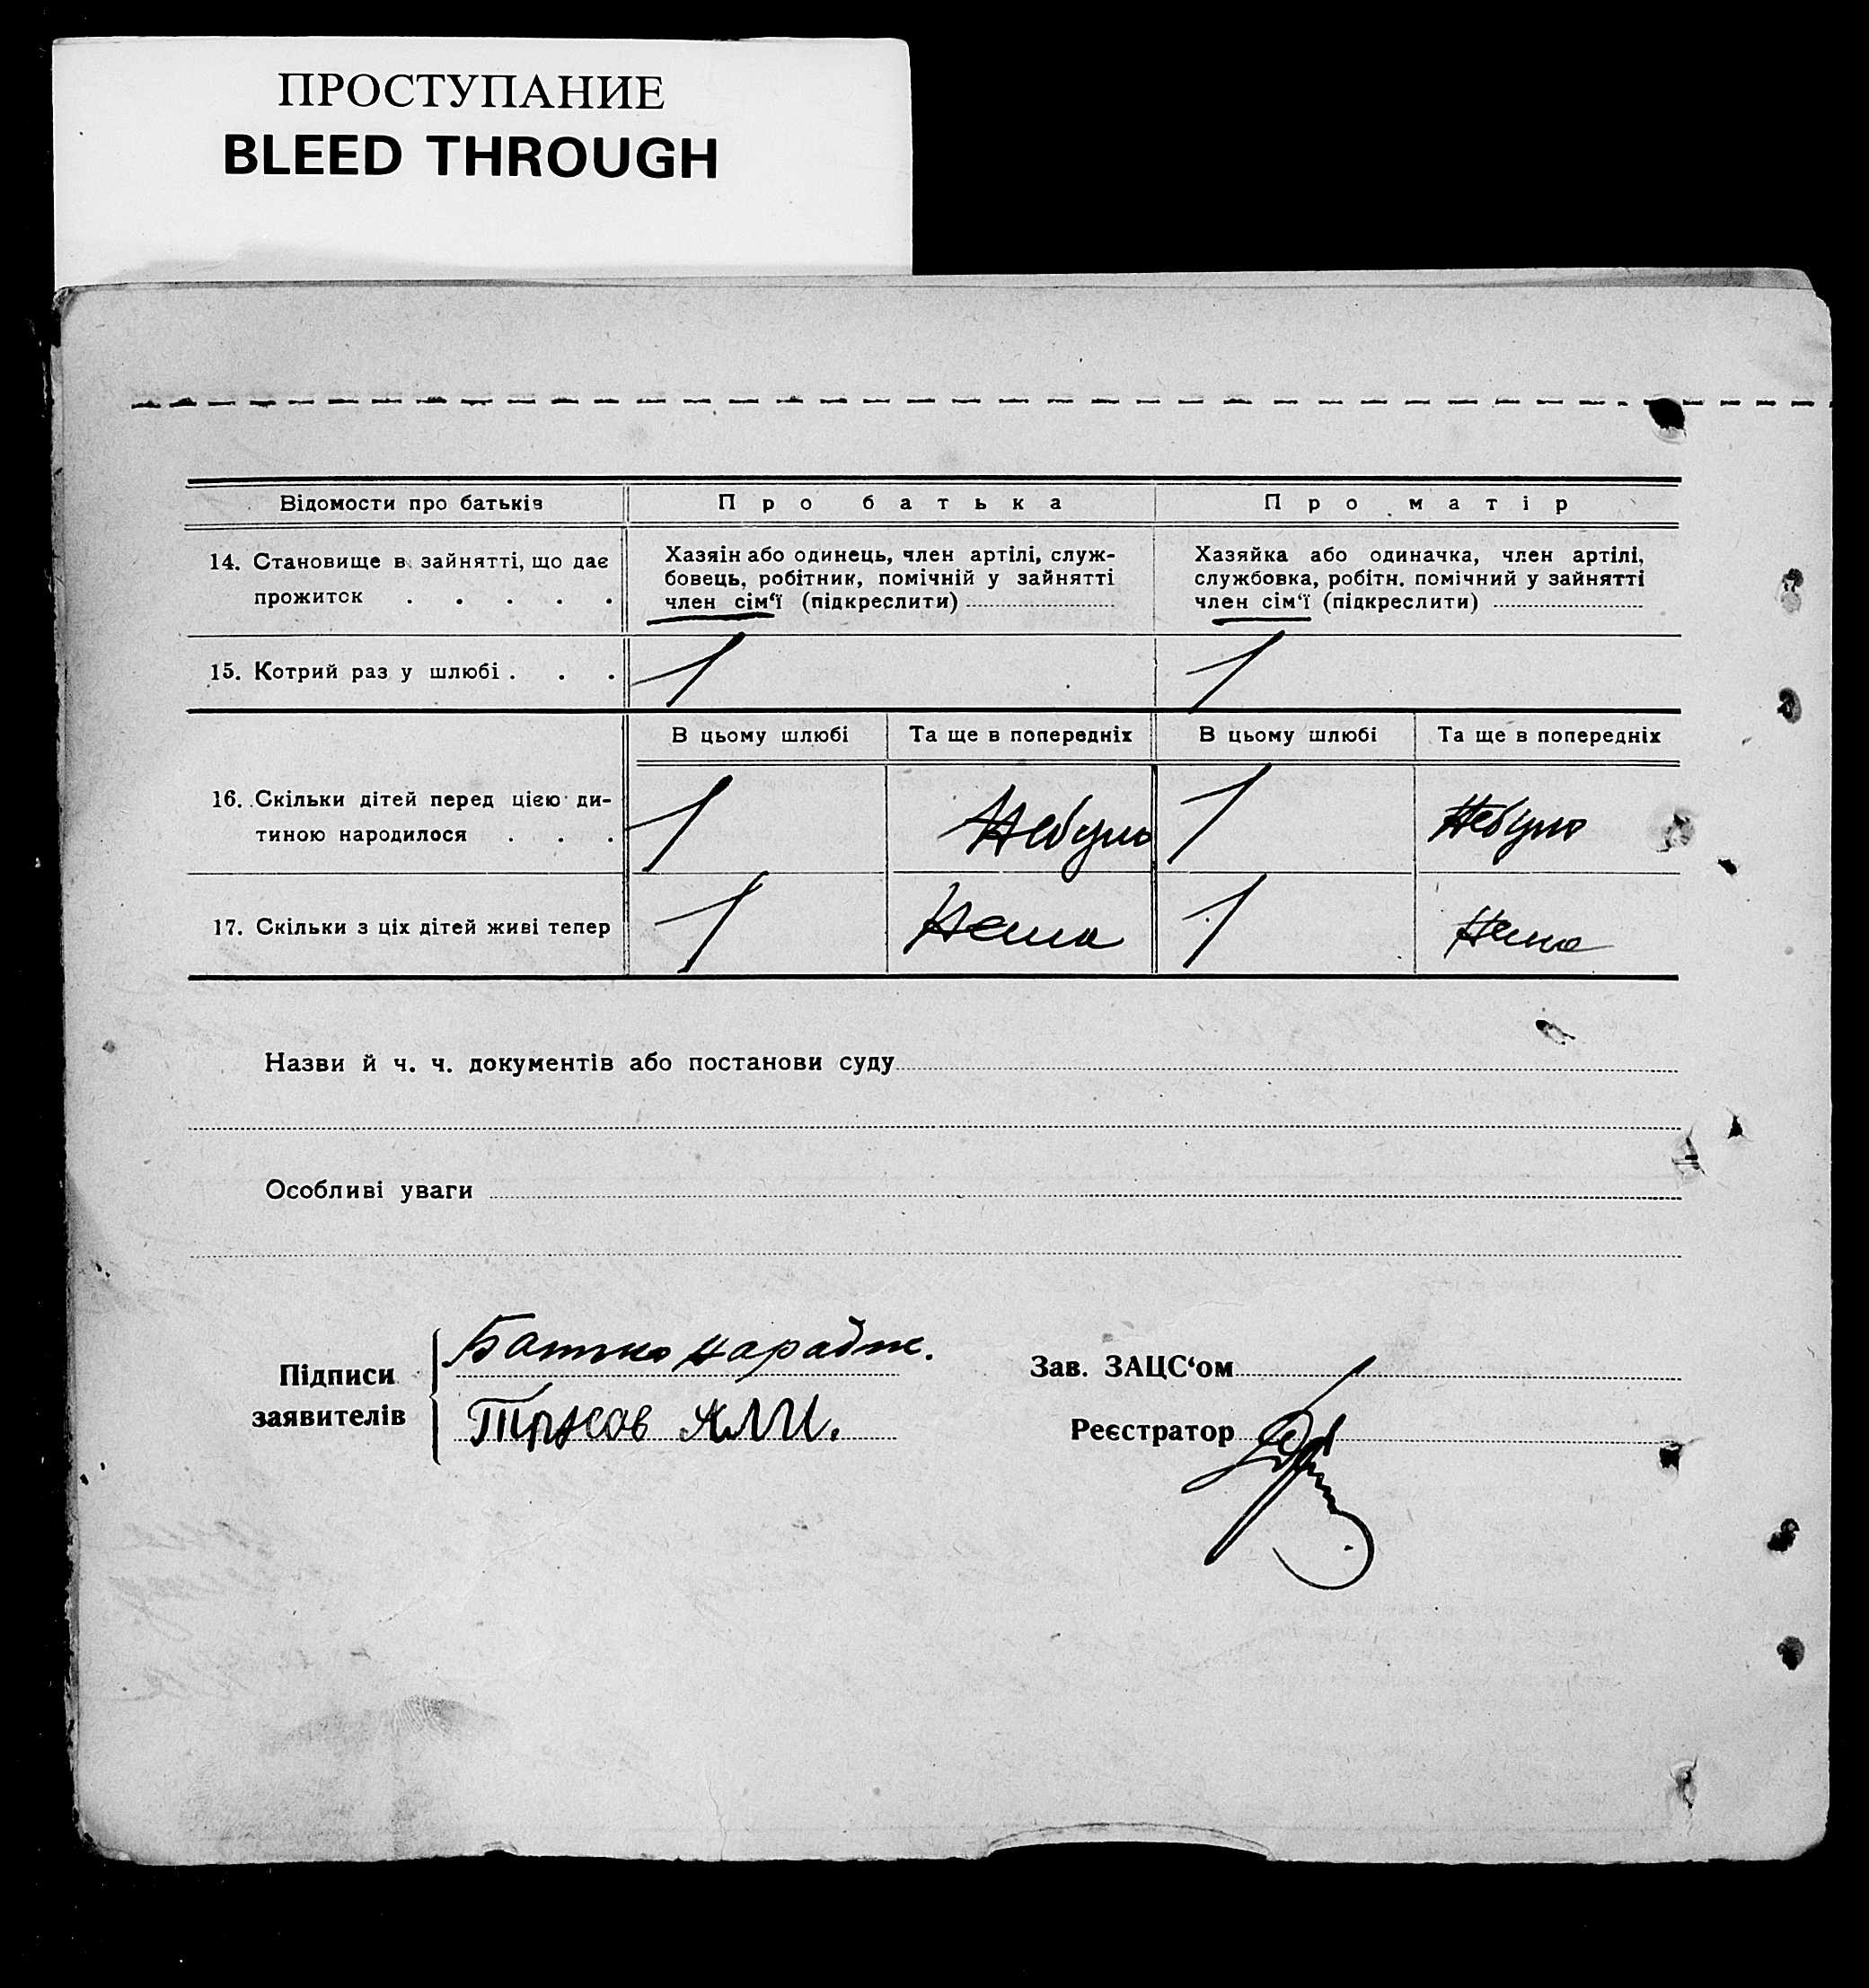 ПРОСТУПАНИЕ
BLEED THROUGH
Відомости про батьків
Про батька
Про матір
14. Становище в зайнятті, що дає
прожиток . . . . .
Хазяін або одинець, член артілі, служ-
бовець, робітник, помічній у зайнятті
член сім‘ї (підкреслити)
Хазяйка або одиначка, член артілі,
службовка, робітн. помічний у зайнятті
член сім‘ї (підкреслити)
15. Котрий раз у шлюбі . . .
1
1
В цьому шлюбі
Та ще в попередніх
В цьому шлюбі
Та ще в попередніх
16. Скільки дітей перед цією ди-
тиною народилося . . .
1
Небуло
1
Небуло
17. Скільки з ціх дітей живі тепер
1
Нема
1
Нема
Назви й ч. ч. документів або постанови суду
Особливі уваги
Підписи
заявителів
Батько
Зав. ЗАЦС‘ом
Реєстратор